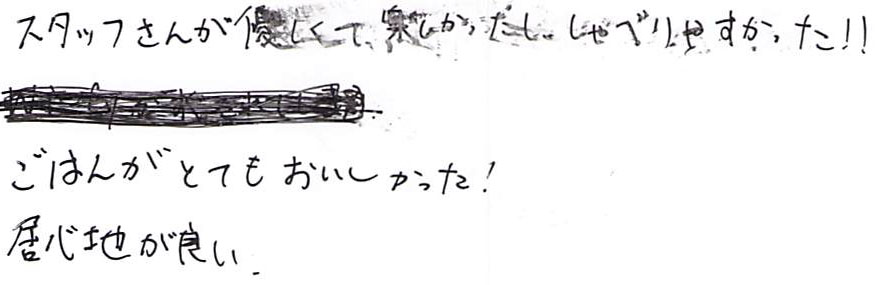 スタッフさんが優しくて、楽しかったし、しゃべりやすかった!!
ごはんがとてもおいしかった!
居心地が良い.